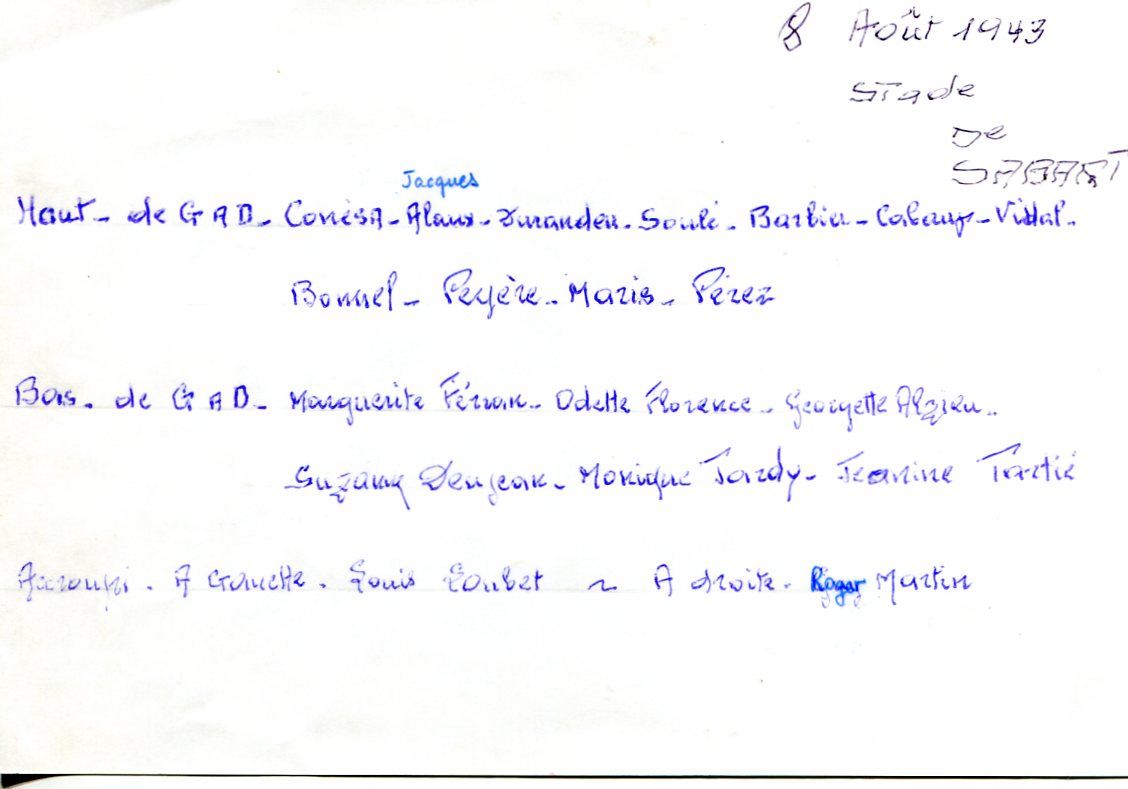 8 Août 1943
Stade
De
SABART
Jacques
Haut - de G A D - Conésa - Alaux - Durandeu - Soulé - Barbier - Cabanp - Vidal -
Bonnel - Peyère - Maris - Pérez
Bas - de G A D - Marguerite Férran - Odette Florence - Georgette Alzieu -
Suzanne Denjean - Monique Tardy - Jeanine Tartié
Accroupi - A Gauche - Louis Loubet ~ A droite - Roger Martin